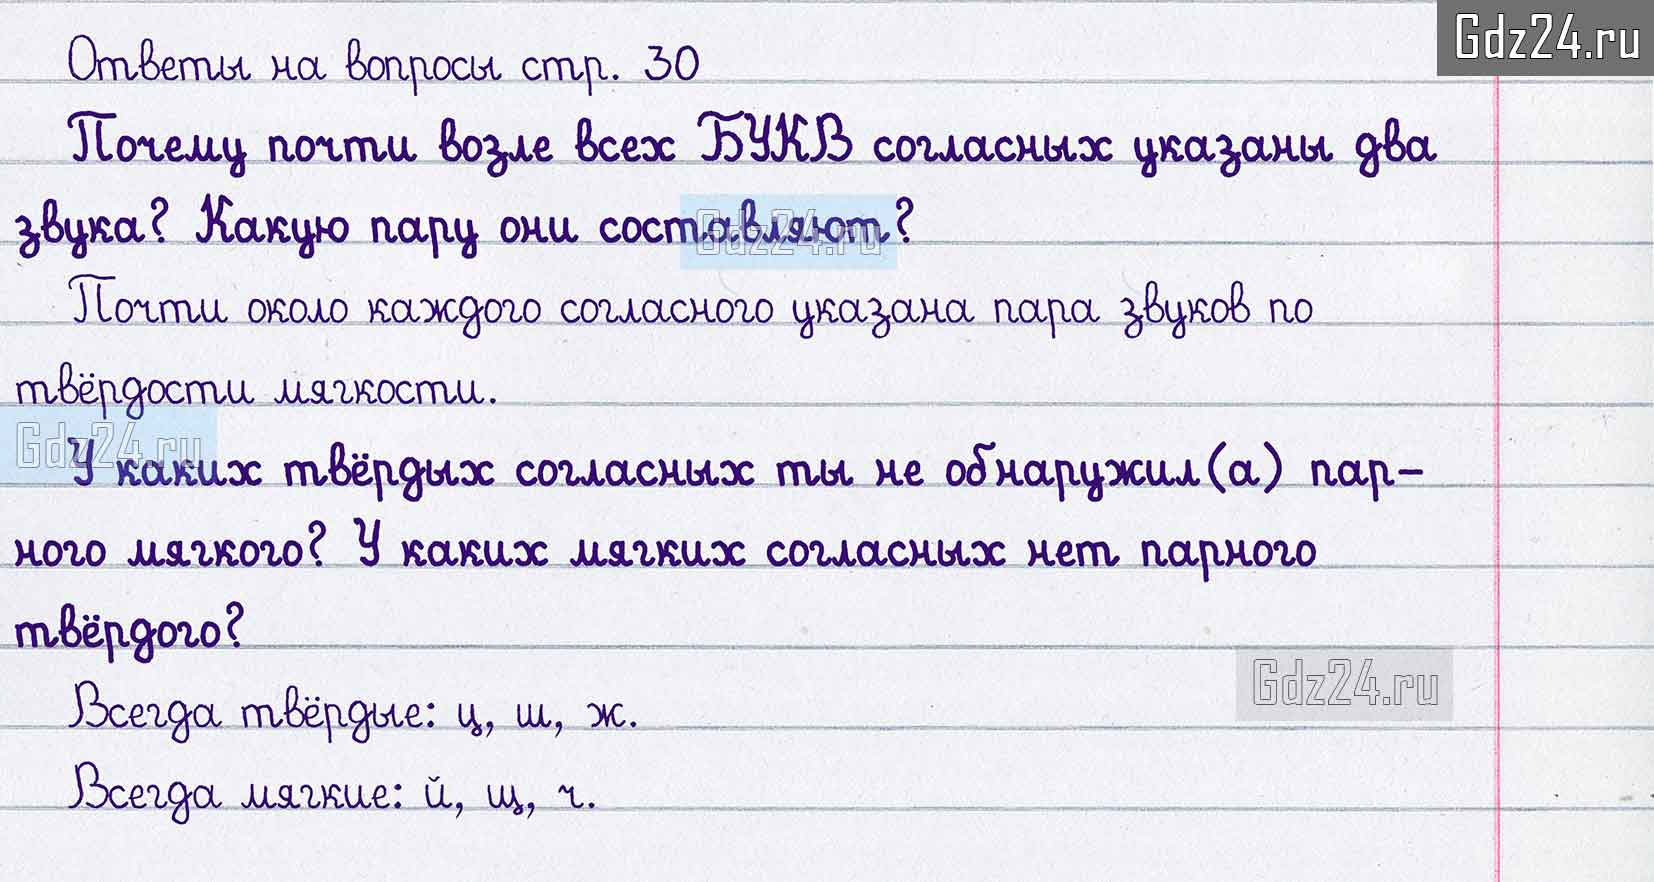 Gdz24.ru
Ответы на вопросы стр. 30
Почему почти возле всех БУКВ согласных указаны два
звука? Какую пару они составляют?
Gdz24.ru
Почти около каждого согласного указана пара звуков по
твёрдости мягкости.
Gdz24.ru
У каких твёрдых согласных ты не обнаружил(а) пар-
ного мягкого? У каких мягких согласных нет парного
твёрдого?
Gdz24.ru
Всегда твёрдые: ц, ш, ж.
Всегда мягкие: й, щ, ч.